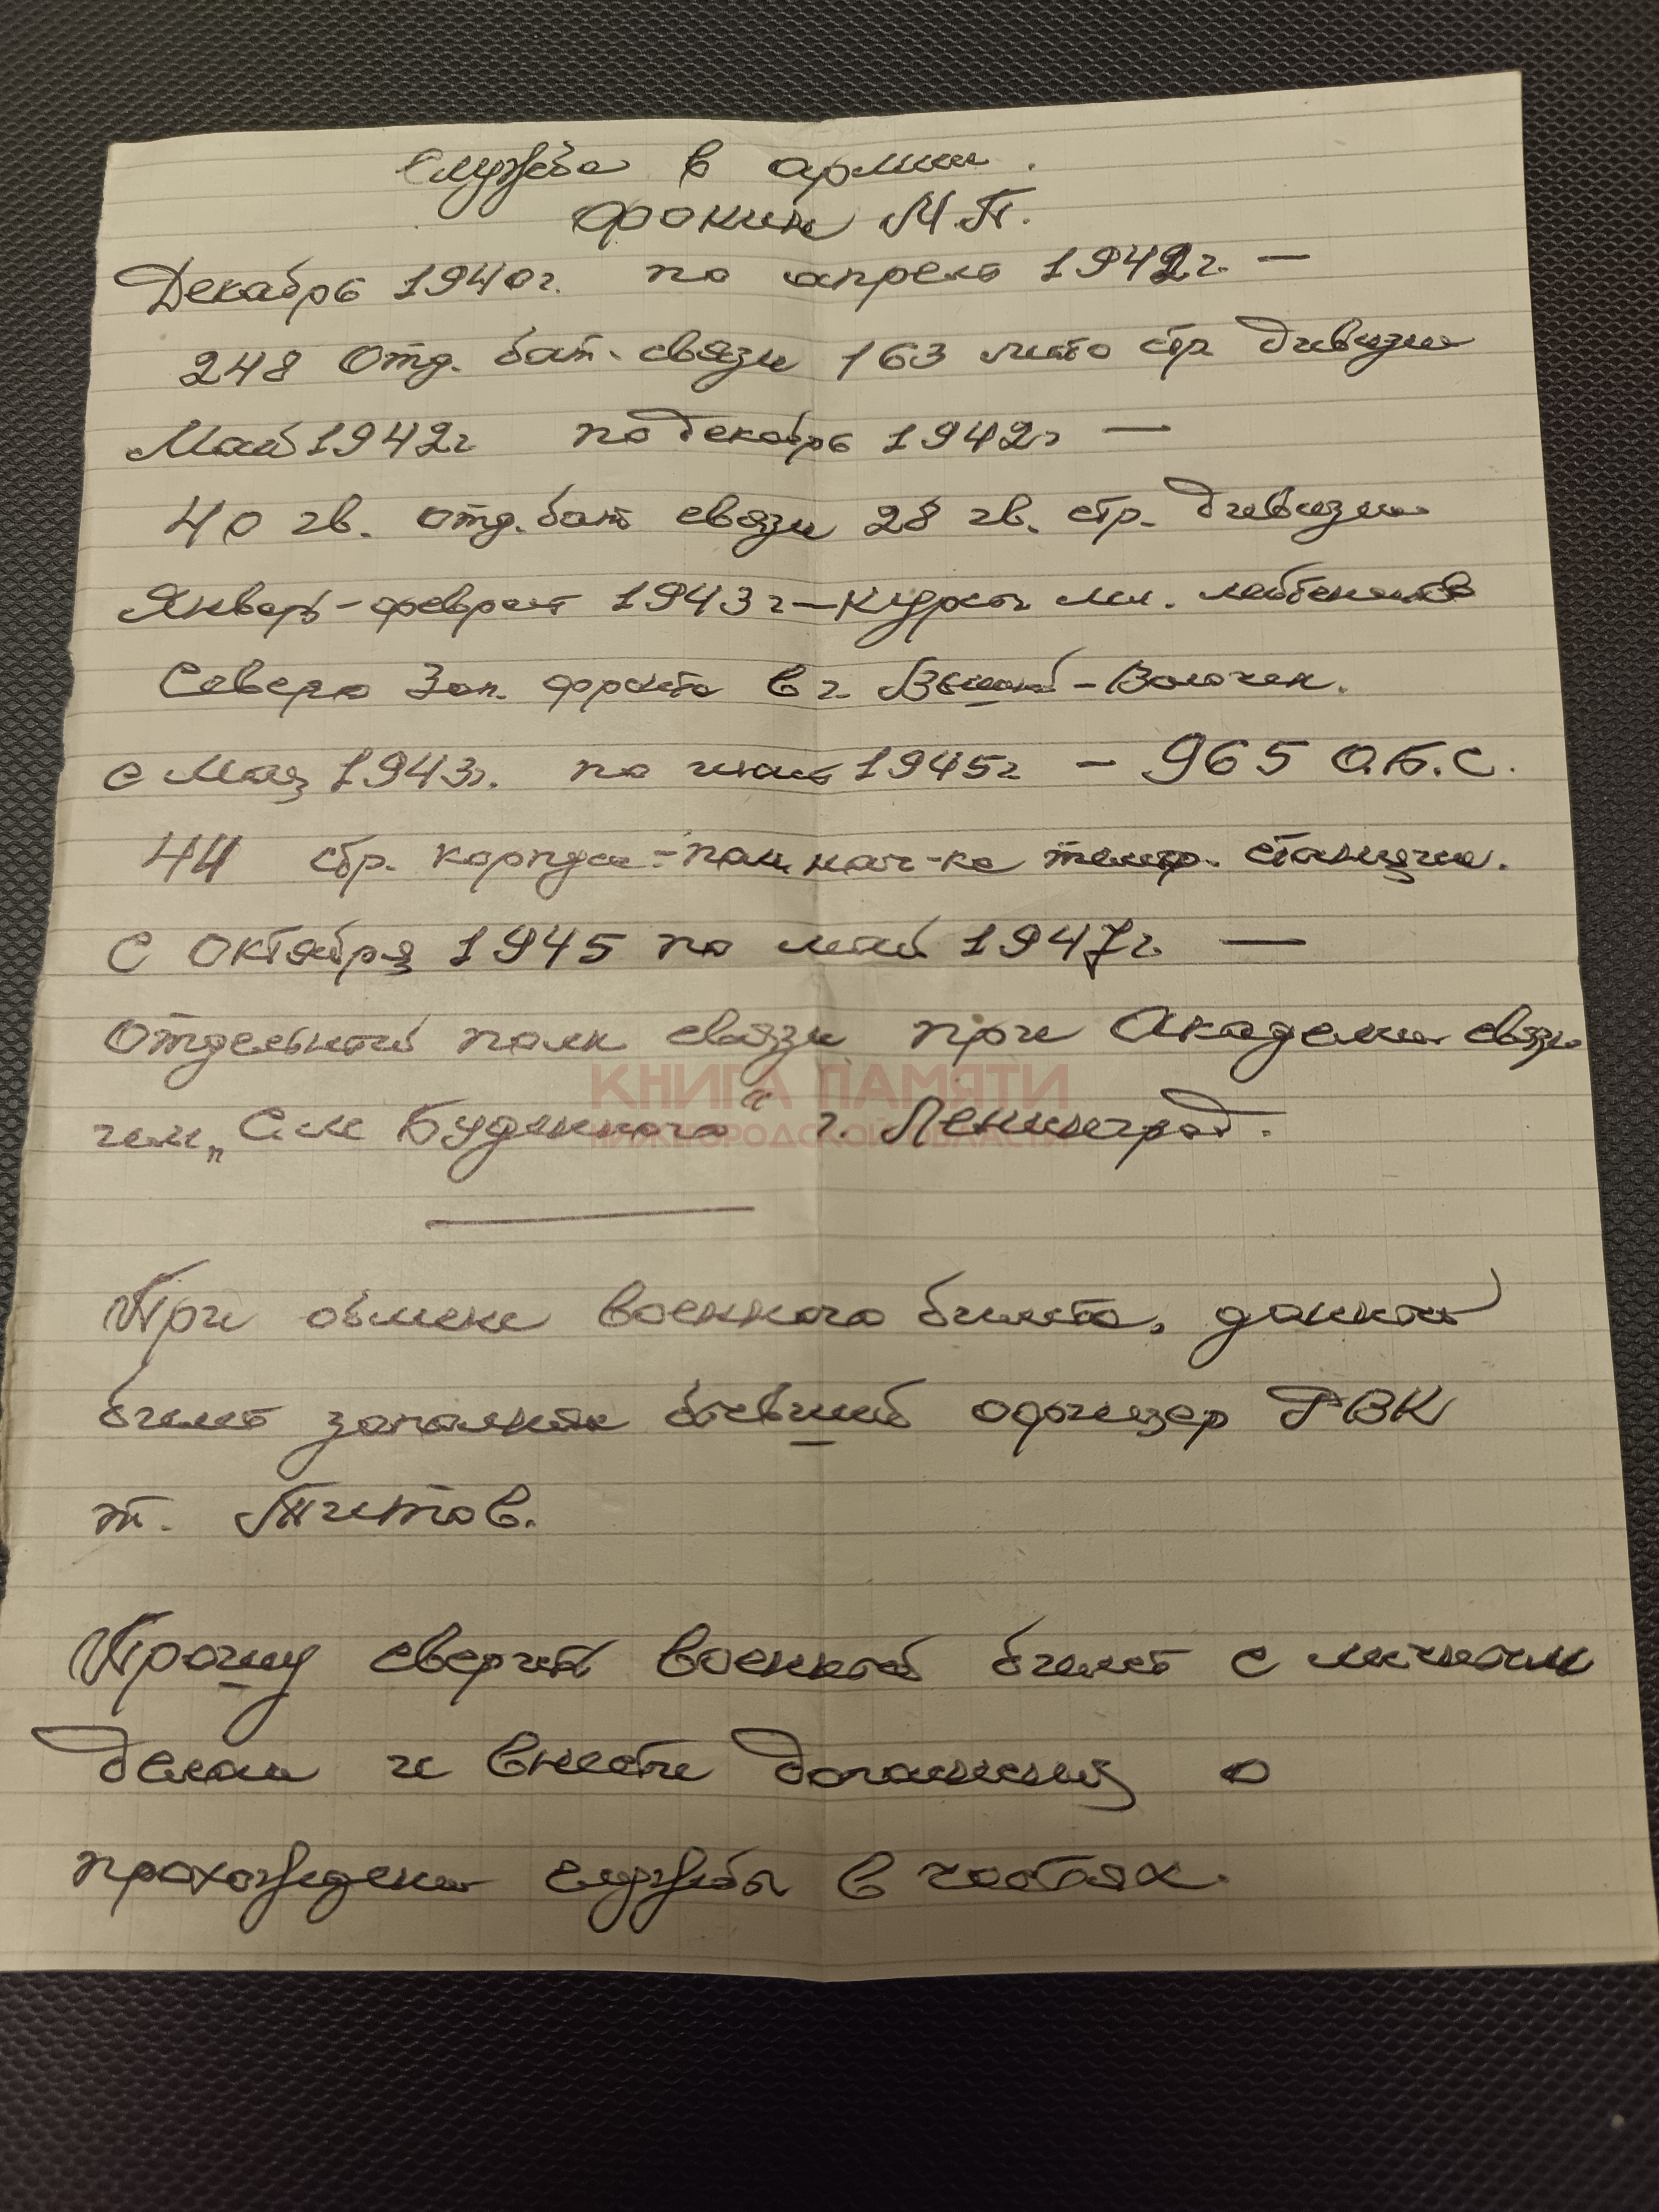 Служба в армии.
Фокин М.П.
Декабрь 1940г. по апрель 1942г. —
248 отд. бат. связи 163 мото стр дивизии
Май 1942г по декабрь 1942г —
40 гв. отд. бат связи 28 гв. стр. дивизии
Январь-февраль 1943г — Курсы мл. лейтенантов
Северо Зап. фронта в г. Вышний-Волочек.
с Мая 1943г. по июль 1945г - 965 О.Б.С.
44 стр. корпуса - пом. нач-ка телегр. станции.
С Октября 1945 по май 1947г. —
Отдельный полк связи при Академии связи
им „Сем Буденного“ г. Ленинград.
КНИГА ПАМЯТИ
НИЖЕГОРОДСКОЙ ОБЛАСТИ
При обмене военного билета, данный
билет заполнял бывший офицер РВК
т. Титов.
Прошу сверить военный билет с личным
делом и внести дополнения о
прохождении службы в частях.